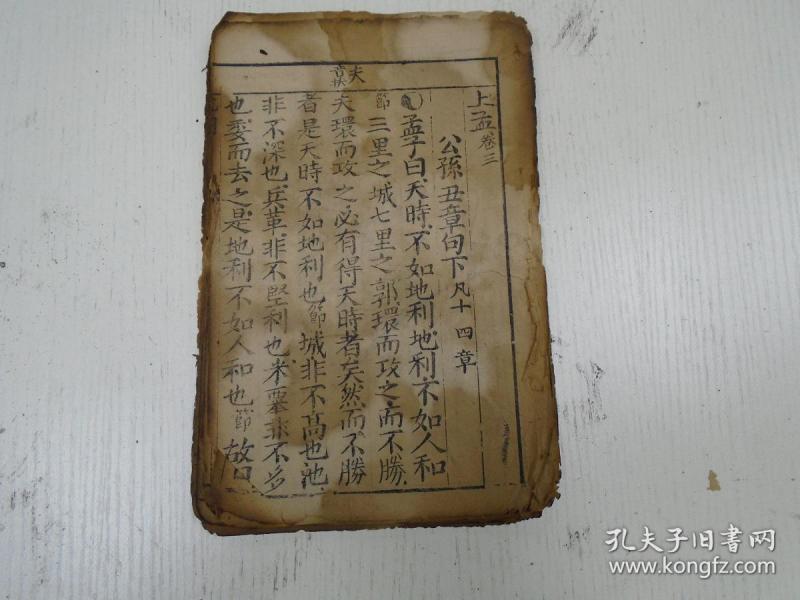 上孟卷三
公孫丑章句下凡十四章
孟子曰天時不如地利地利不如人和
節三里之城七里之郭環而攻之而不勝
夫環而攻之必有得天時者矣然而不勝
者是天時不如地利也節城非不高也池
非不深也兵革非不堅利也米粟非不多
也委而去之是地利不如人和也節故曰
孔夫子旧书网
www.kongfz.com